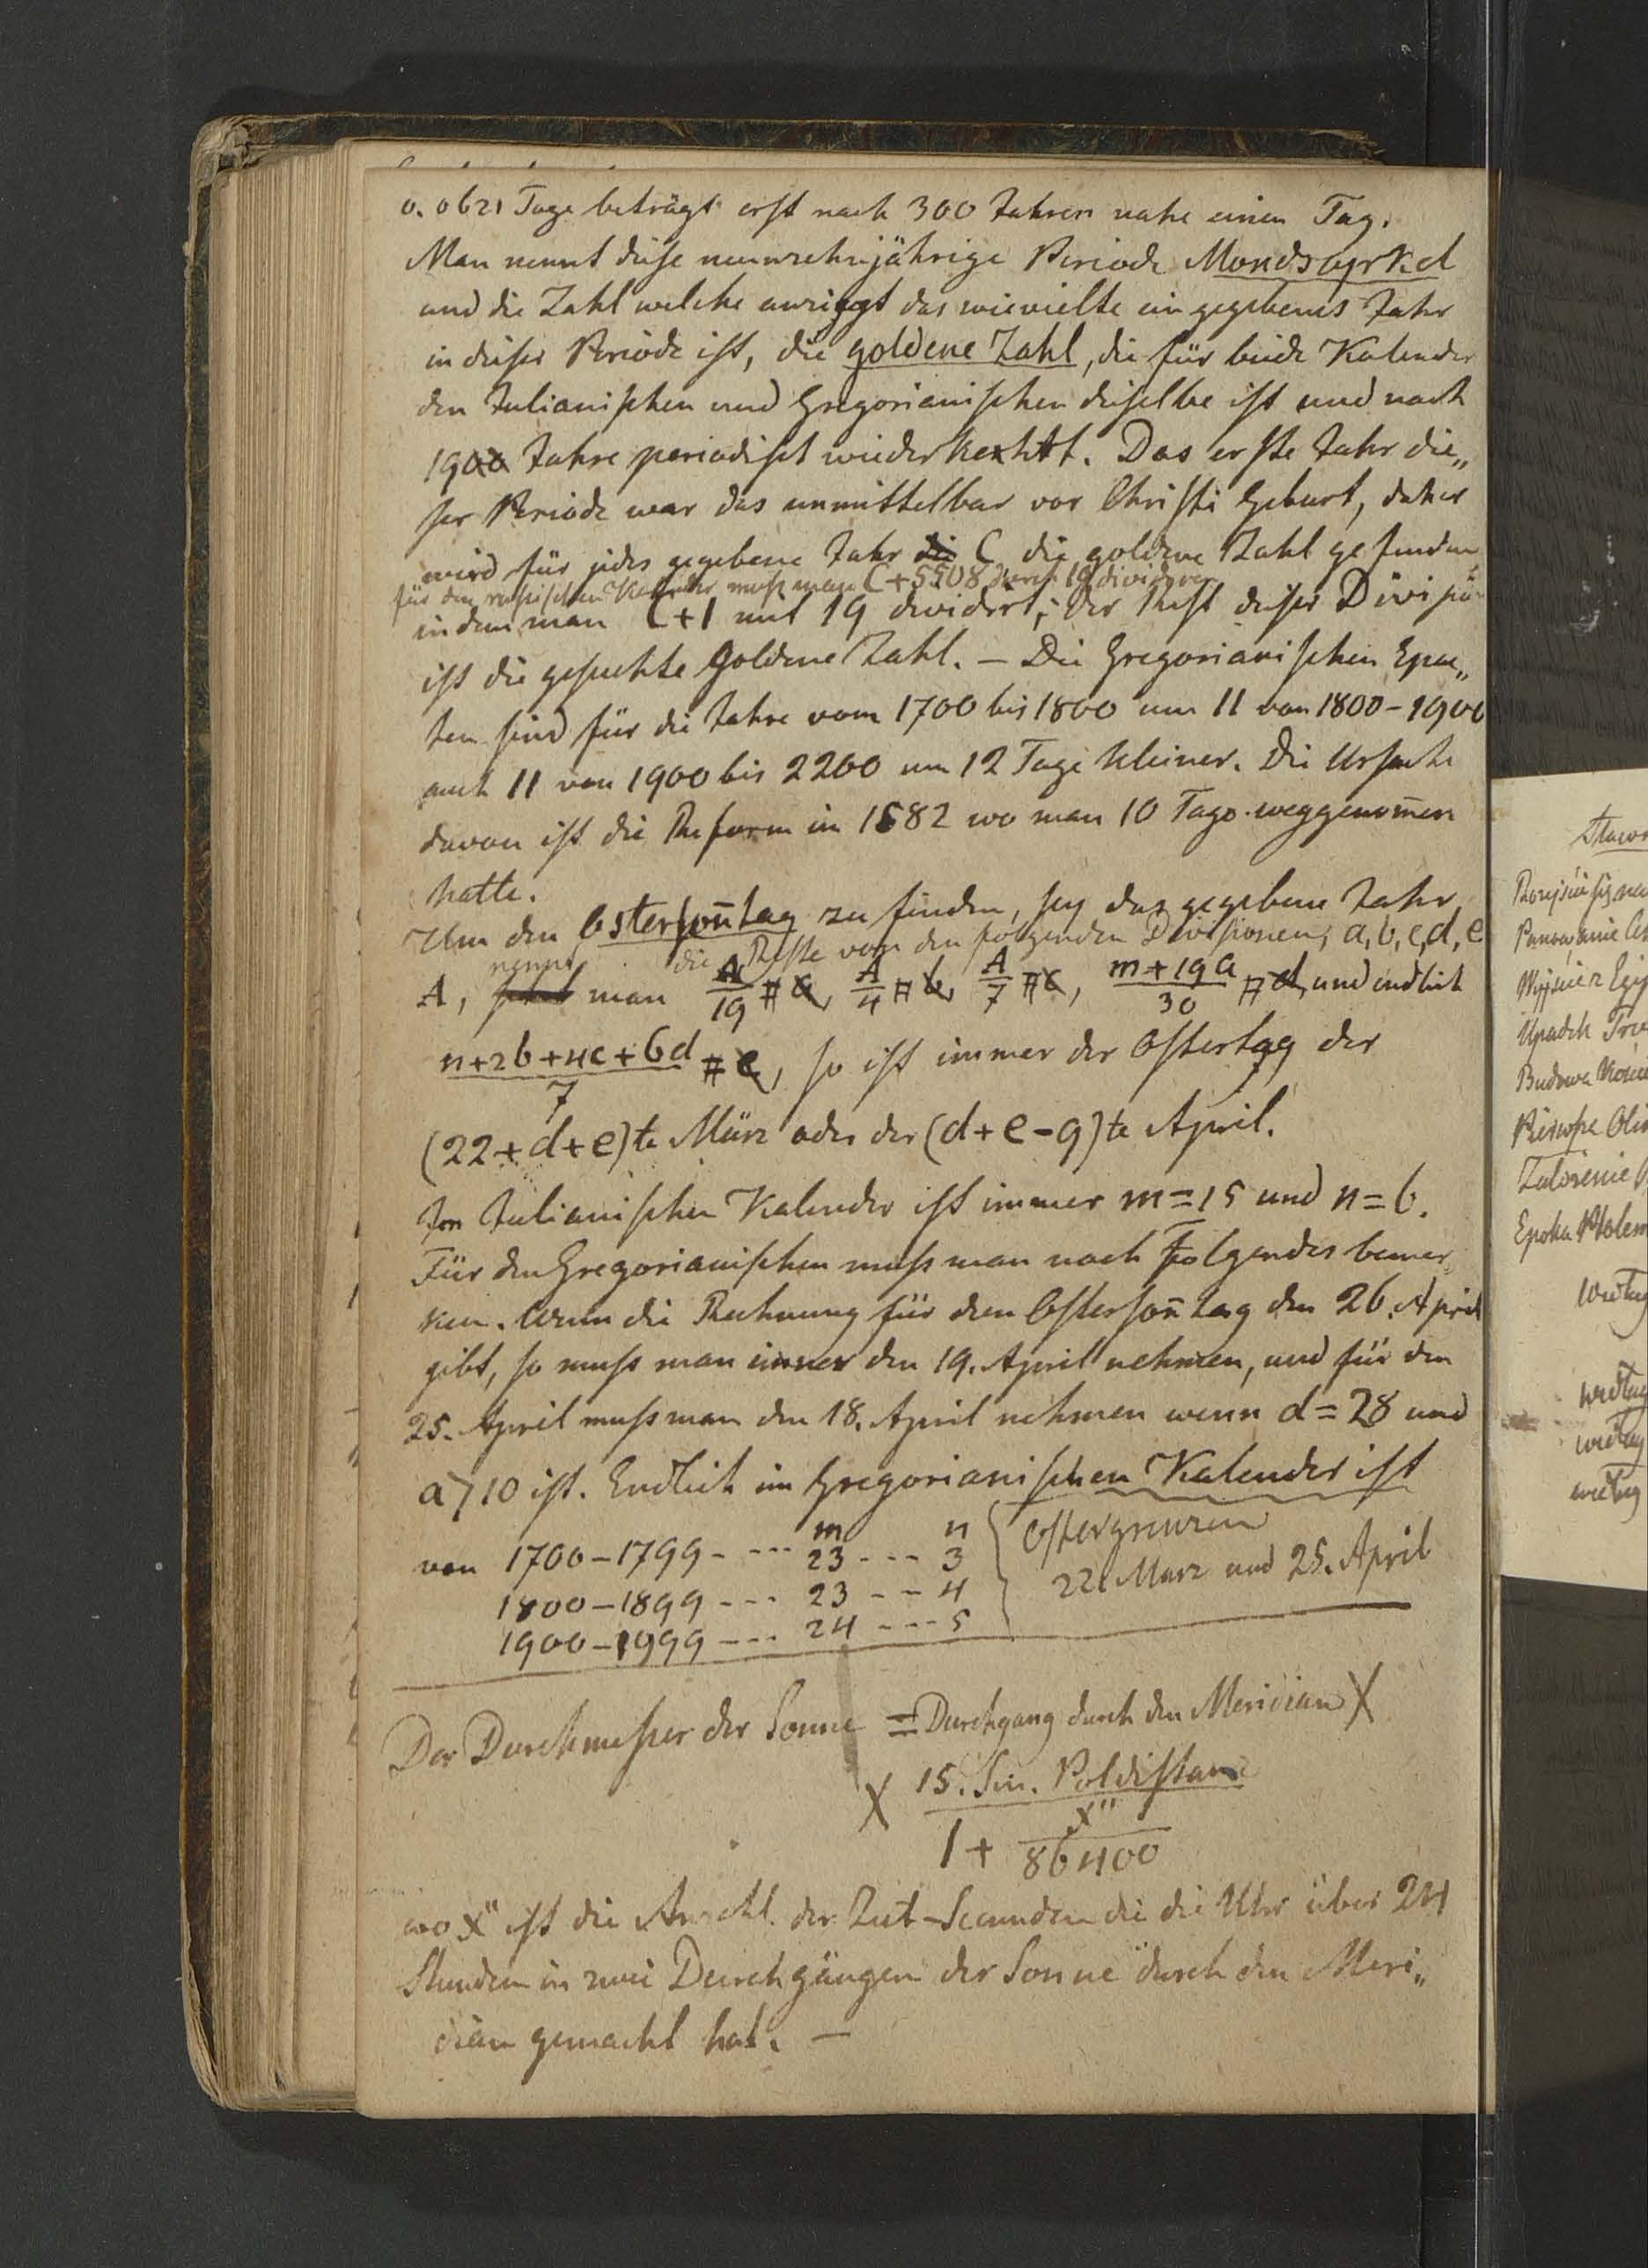 0.0621 Tage beträgt erst nach 300 Jahren nahe einen Tag.
Man nennt diese neunzehnjährige Periode Mondzyrkel
und die Zahl welche anzeigt das wievielte ein gegebenes Jahr
in dieser Periode ist, die goldene Zahl, die für beide Kalender
den Julianischen und Gregorianischen dieselbe ist und nach
19 Jahre periodisch wiederkehrt. Das erste Jahr die„
ser Periode war das unmittelbar vor Christi Geburt, daher
wird für jedes gegebene Jahr C die goldene Zahl gefunden
für den russischen Kalender muß man C+5508 durch 19 dividiren
indem man C+1 mit 19 dividirt; der Rest dieser Division
ist die gesuchte Goldene Zahl. – Die Gregorianischen Epac„
ten sind für die Jahre vom 1700 bis 1800 um 11 von 1800–1900
auch 11 von 1900 bis 2200 um 12 Tage kleiner. Die Ursache
davon ist die Reform in 1582 wo man 10 Tage weggenom̄en
hatte.
Um den Osterson̄tag zu finden, sey das gegebene Jahr
nennt die Reste von den folgenden Divisionen, a, b, c, d, e
A, man A/19 # a, A/4 # b, A/7 # c, m+19a/30 # d, und endlich
n+2b+4c+6d/7 # e, so ist immer der Ostertag der
(22+d+e)te März oder der (d+e-9)te April.
Im Julianischen Kalender ist immer m=15 und n=6.
Für den Gregorianischen muß man noch Folgendes bemer„
ken. Wenn die Rechnung für den Osterson̄tag den 26. April
gibt, so muß man immer den 19. April nehmen, und für den
25. April muß man den 18. April nehmen wenn d=28 und
a>10 ist. Endlich im Gregorianischen Kalender ist
m n
von 1700–1799 - --- 23 --- 3 Ostergrenzen
1800–1899 --- 23 -- 4 22. Marz und 25. April
1900–1999 --- 24 --- 5
Der Durchmesser der Sonne = Durchgang durch den Meridian X
X 15. Sin. Poldistanz
1 + x"/86400
wo x" ist die Anzahl der Zeit-Secunden die die Uhr über 24
Stunden in zwei Durchgängen der Sonne durch den Meri„
dian gemacht hat. —
Upadek
Budowa
Epoka
według
według
według